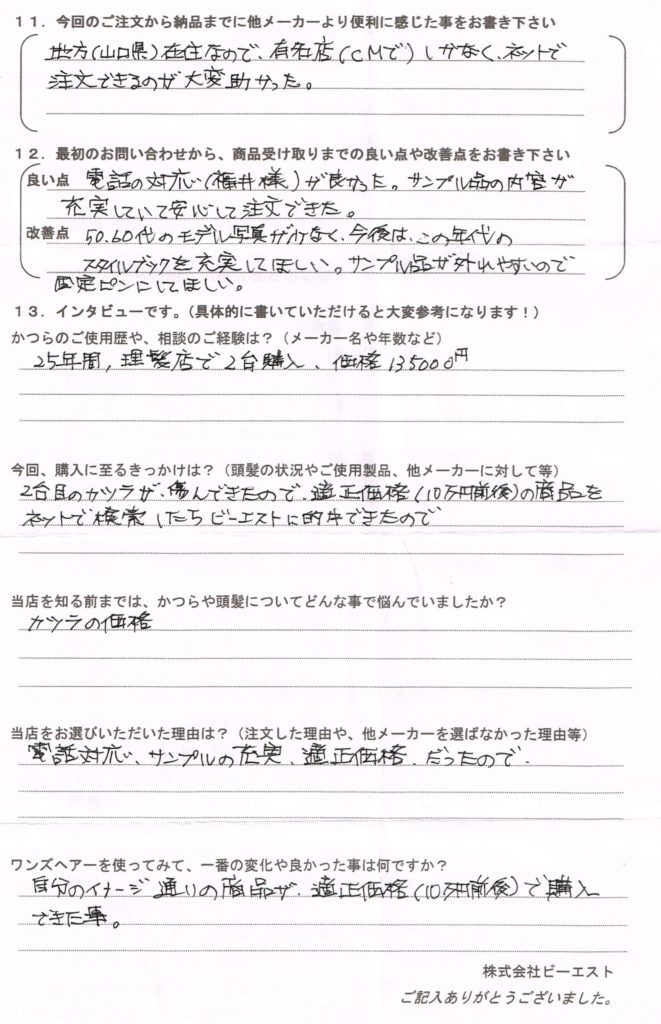 １１．今回のご注文から納品までに他メーカーより便利に感じた事をお書き下さい
地方(山口県)在住なので、有名店(CMで)しかなく、ネットで
注文できるのが大変助かった。
１２．最初のお問い合わせから、商品受け取りまでの良い点や改善点をお書き下さい
良い点 電話の対応(福井様)が良かった。サンプル品の内容が
充実していて安心して注文できた。
改善点 50.60代のモデル写真が少なく、今後は、この年代の
スタイルブックを充実してほしい。サンプル品が外れやすいので
固定ピンにしてほしい。
１３．インタビューです。（具体的に書いていただけると大変参考になります！）
かつらのご使用歴や、相談のご経験は？（メーカー名や年数など）
25年間, 理髪店で2台購入、価格135000円
今回、購入に至るきっかけは？（頭髪の状況やご使用製品、他メーカーに対して等）
2台目のカツラが、傷んできたので、適正価格(10万円前後)の商品を
ネットで検索したらビーエストに的中できたので
当店を知る前までは、かつらや頭髪についてどんな事で悩んでいましたか？
カツラの価格
当店をお選びいただいた理由は？（注文した理由や、他メーカーを選ばなかった理由等）
電話対応、サンプルの充実、適正価格、だったので、
ワンズヘアーを使ってみて、一番の変化や良かった事は何ですか？
自分のイメージ通りの商品が、適正価格(10万円前後)で購入
できた事。
株式会社ビーエスト
ご記入ありがとうございました。